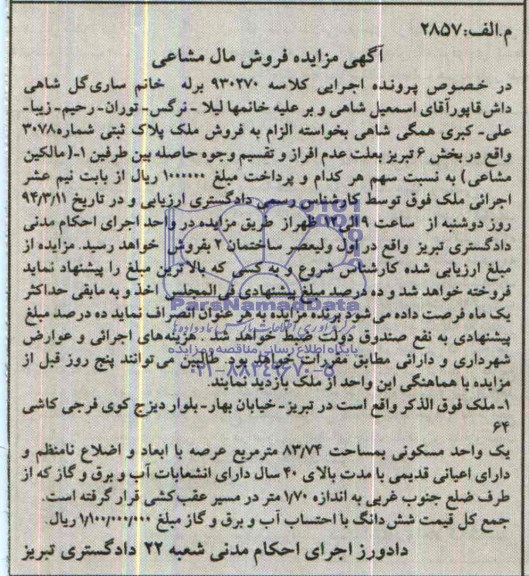 م.الف:۲۸۵۷
آگهی مزایده فروش مال مشاعی
در خصوص پرونده اجرایی کلاسه ۹۳۰۲۷۰ برله خانم ساری‌گل شاهی
داش قاپورآقای اسمعیل شاهی و بر علیه خانمها لیلا - نرگس - توران - رحیم - زیبا -
علی - کبری همگی شاهی بخواسته الزام به فروش ملک پلاک ثبتی شماره ۳۰۷۸
واقع در بخش ۶ تبریز بعلت عدم افراز و تقسیم وجوه حاصله بین طرفین ۱-(مالکین
مشاعی) به نسبت سهم هر کدام و پرداخت مبلغ ۱۰۰۰۰۰۰ ریال از بابت نیم عشر
اجرائی ملک فوق توسط کارشناس رسمی دادگستری ارزیابی و در تاریخ ۹۴/۳/۱۱
روز دوشنبه از ساعت ۹ الی ۱۲ ظهر از طریق مزایده در واحد اجرای احکام مدنی
دادگستری تبریز واقع در اول ولیعصر ساختمان ۲ بفروش خواهد رسید. مزایده از
مبلغ ارزیابی شده کارشناس شروع و به کسی که بالاترین مبلغ را پیشنهاد نماید
فروخته خواهد شد و ده درصد مبلغ پیشنهادی فی المجلس اخذ و به مابقی حداکثر
یک ماه فرصت داده می شود برنده مزایده به هر عنوان انصراف نماید ده درصد مبلغ
پیشنهادی به نفع صندوق دولت ضبط خواهد شد. هزینه‌های اجرائی و عوارض
شهرداری و دارائی مطابق مقررات خواهد بود. طالبین می‌توانند پنج روز قبل از
مزایده با هماهنگی این واحد از ملک بازدید نمایند.
۱- ملک فوق الذکر واقع است در تبریز - خیابان بهار - بلوار دیزج کوی فرجی کاشی
۶۴
یک واحد مسکونی بمساحت ۸۳/۷۴ مترمربع عرصه با ابعاد و اضلاع نامنظم و
دارای اعیانی قدیمی با مدت بالای ۴۰ سال دارای انشعابات آب و برق و گاز که از
طرف ضلع جنوب غربی به اندازه ۱/۷۰ متر در مسیر عقب‌کشی قرار گرفته است.
جمع کل قیمت شش‌دانگ با احتساب آب و برق و گاز مبلغ ۱/۱۰۰/۰۰۰/۰۰۰ ریال.
دادورز اجرای احکام مدنی شعبه ۲۲ دادگستری تبریز
ParsNamadData
پایگاه اطلاع رسانی مناقصه و مزایده
۰۲۱-۸۸۳۴۹۶۷۰-۵